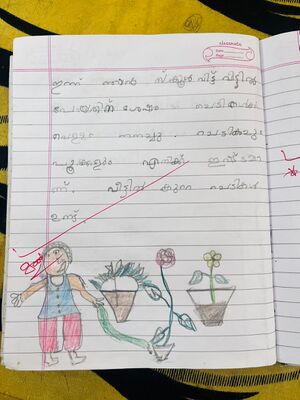 classmate
Date
Page
ഇന്ന് ഞാൻ സ്കൂൾ വിട്ട് വീട്ടിൽ
പോയതിന് ശേഷം ചെടികൾക്ക്
വെള്ളം നനച്ചു. ചെടികളും
പൂക്കളും എനിക്ക് ഇഷ്ടമാ
ണ്. വീട്ടിൽ കുറേ ചെടികൾ
ഉണ്ട്.
good